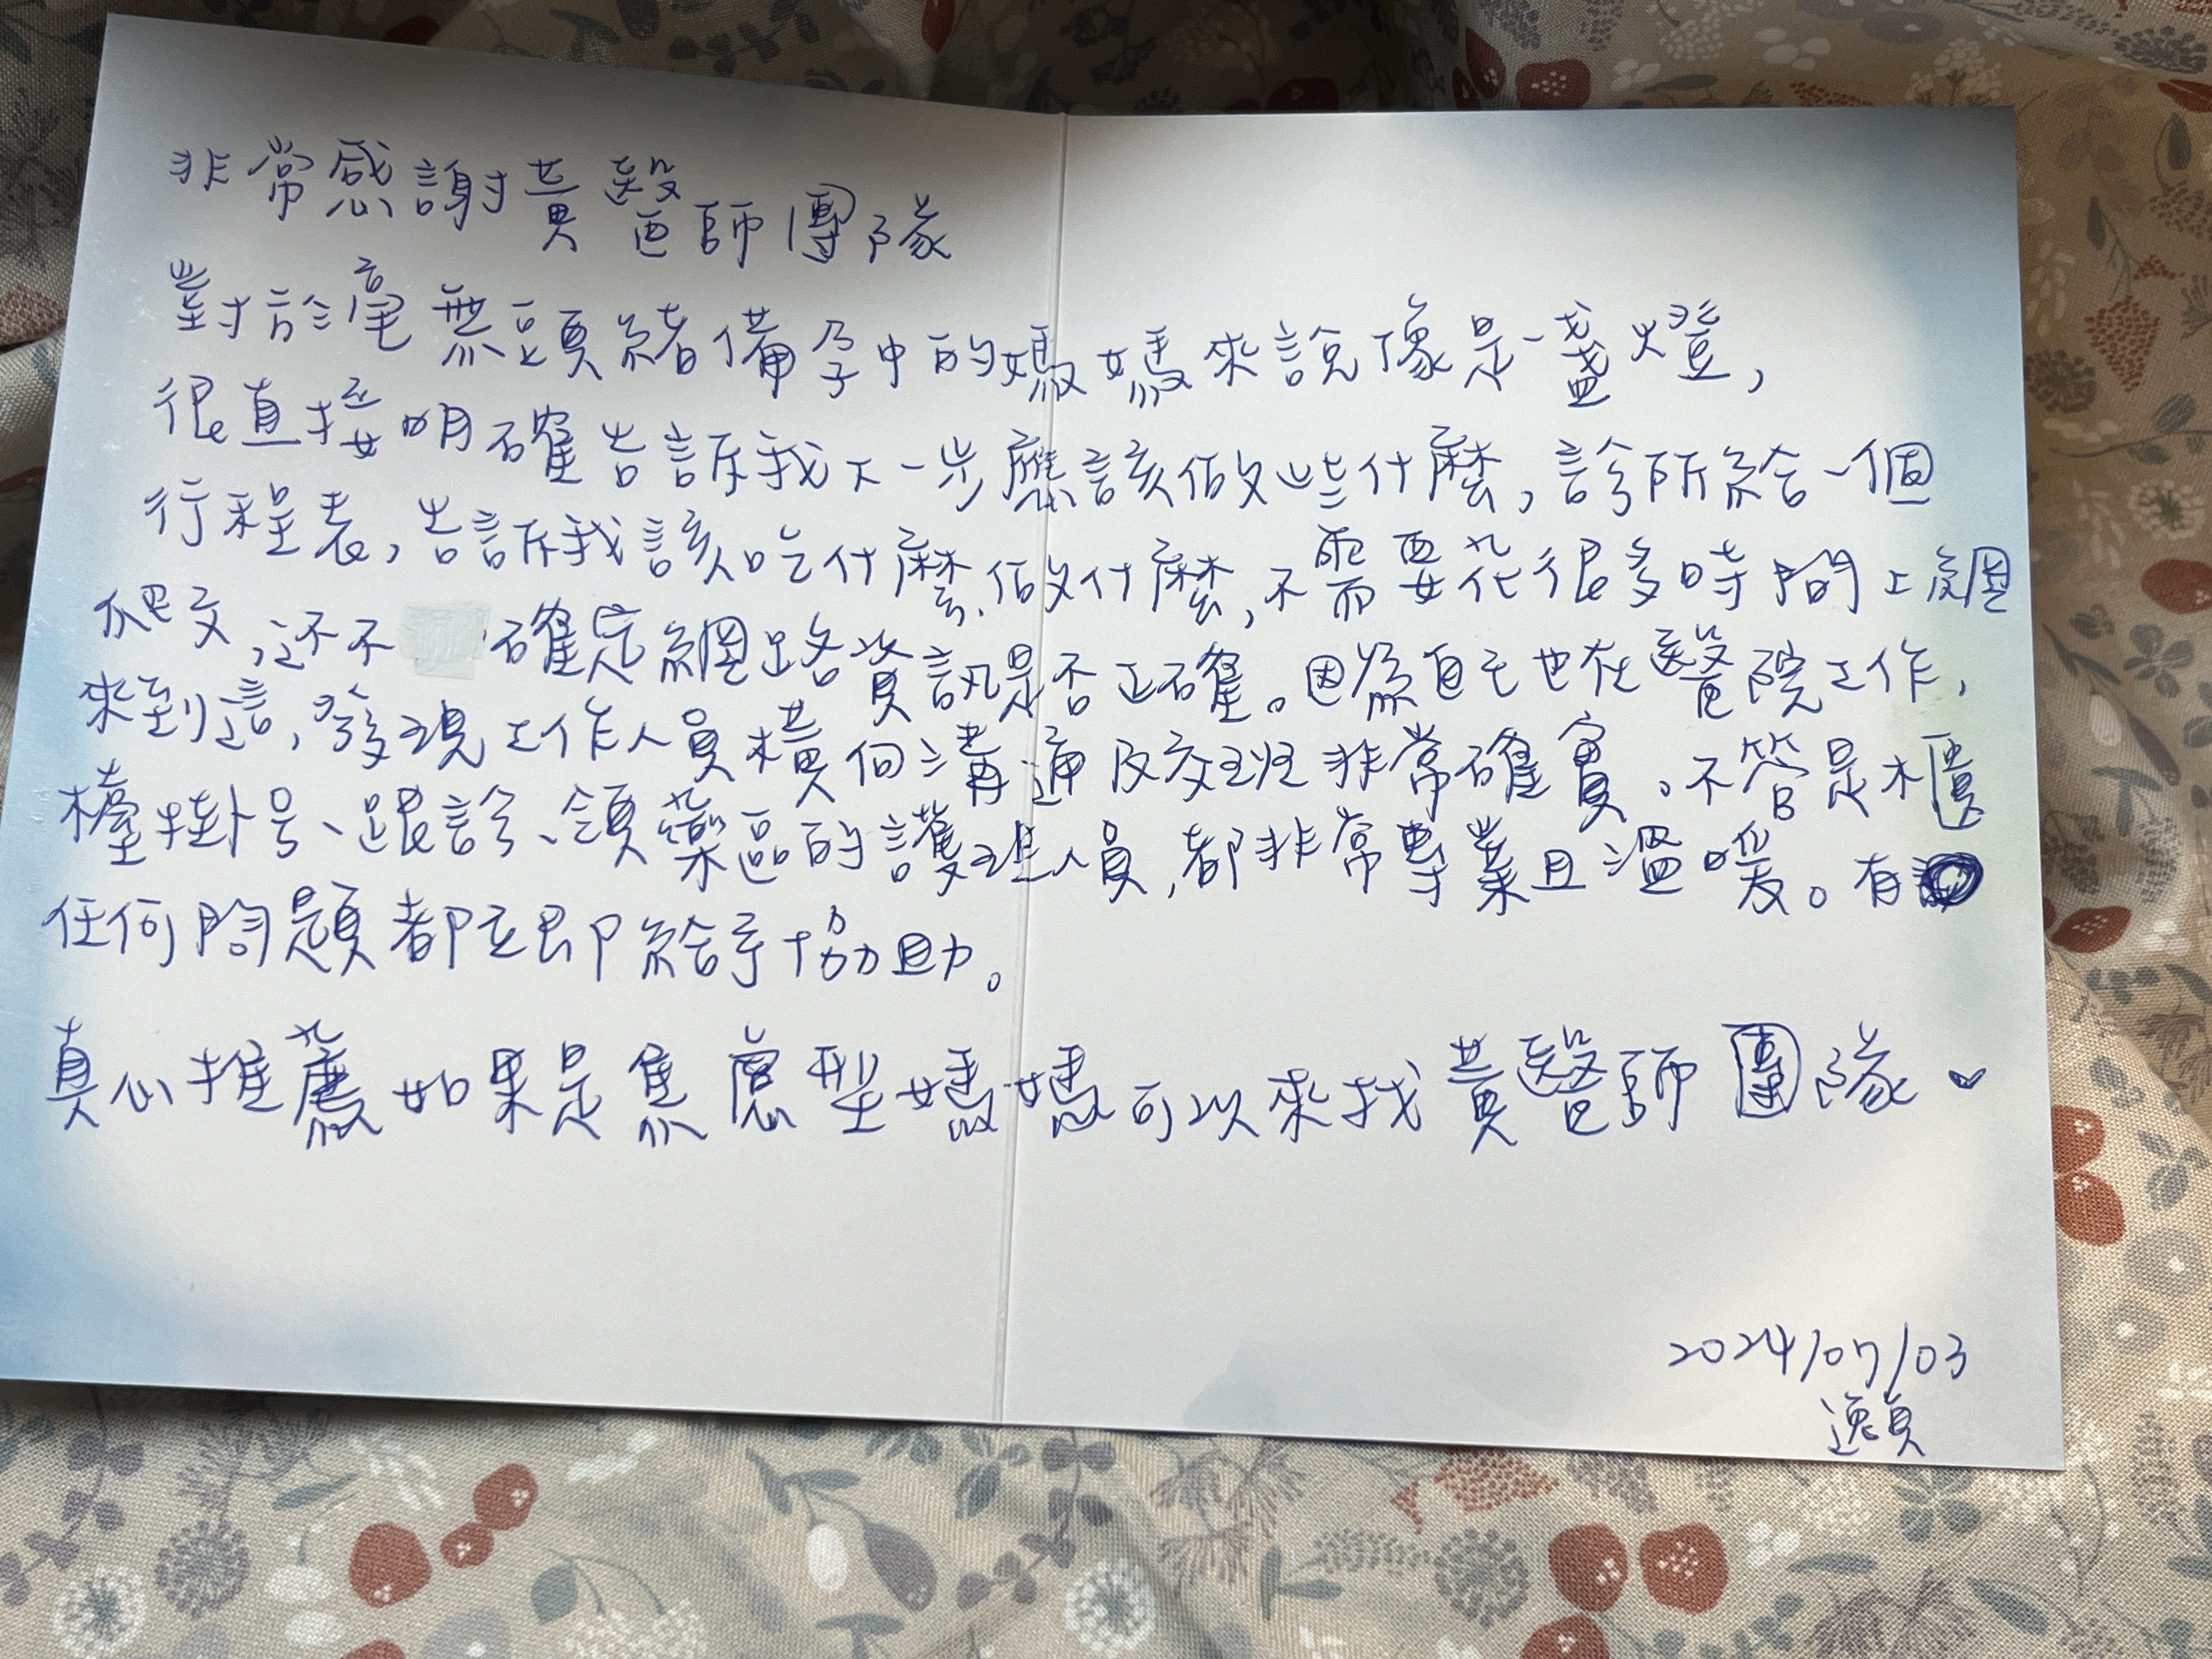 非常感謝黃醫師團隊
對於毫無頭緒備孕中的媽媽來說像是一盞燈，
很直接明確告訴我下一步應該做些什麼，診所給一個
行程表，告訴我該吃什麼、做什麼，不需要花很多時間上網
爬文，还不確定網路資訊是否正確。因為自己也在醫院工作，
來到這，發現工作人員橫向溝通及交班非常確實，不管是櫃
檯掛号、跟診、領藥區的護理人員，都非常專業且溫暖。有
任何問題都立即給予協助。
真心推薦如果是焦慮型媽媽可以來找黃醫師團隊♥
2024/07/03
逸